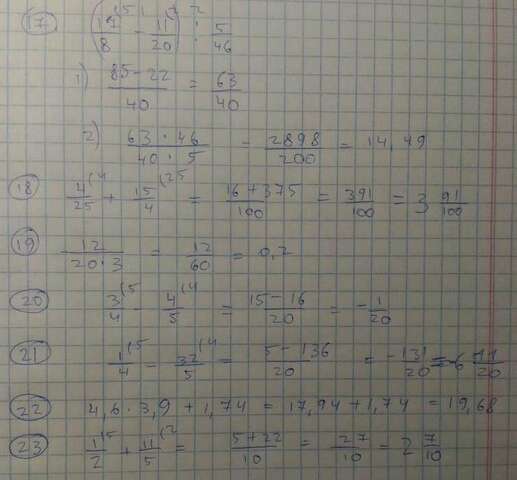 17 (17/8 (5 - 11/20 (2) : 5/46
1) 85-22/40 = 63/40
2) 63·46/40·5 - 2898/200 = 14,49
18 4/25 (4 + 15/4 (25 = 16+375/100 = 391/100 = 3 91/100
19 12/20·3 = 12/60 = 0,2
20 3/4 (5 - 4/5 (4 = 15-16/20 = -1/20
21 1/4 (5 - 32/5 (4 = 5-136/20 = -131/20 = -6 11/20
22 4,6·3,9+1,74 = 17,94+1,74 = 19,68
23 1/2 (5 + 11/5 (2 = 5+22/10 = 27/10 - 2 7/10